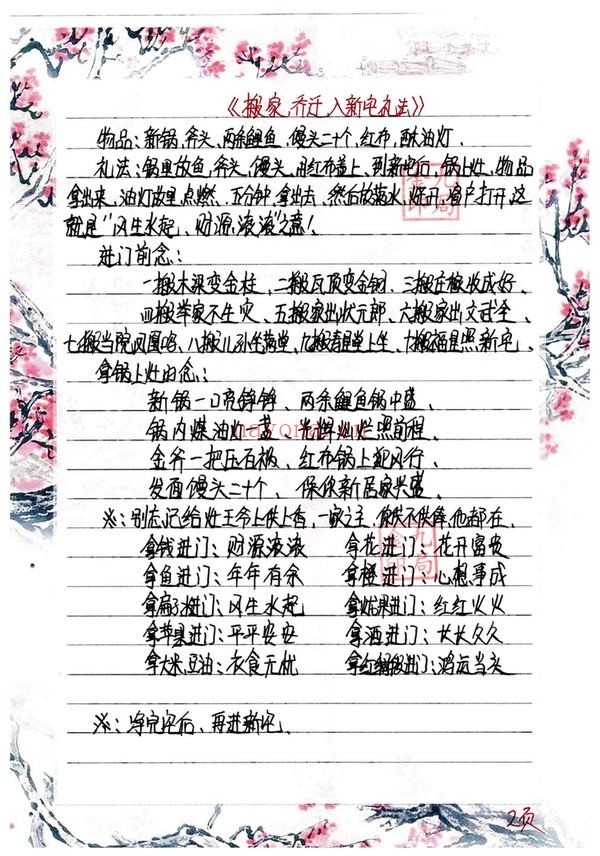 《搬家,乔迁入新宅礼法》
物品:新锅,斧头,两条鲤鱼,馒头二十个,红布,酥油灯.
礼法:锅里放鱼,斧头,馒头,用红布盖上,到新宅后,锅上灶,物品
拿出来,油灯放里点燃,五分钟,拿出去,然后放满水,烧开,窗户打开,这
就是“风生水起、财源滚滚”之意!
进门前念:
一搬木梁变金柱,二搬瓦顶变金钢.三搬庄稼收成好、
四搬举家不生灾、五搬家出状元郎、六搬家出文武全、
七搬当院凤凰鸣、八搬儿孙生满堂、九搬喜自堂上生、十搬福星照新宅、
拿锅上灶时念:
新锅一口亮铮铮、两条鲤鱼锅中盛、
锅内煤油灯一盏、光辉灿烂照前程、
金斧一把压石板、红布锅上迎风行、
发面馒头二十个、保你新居家兴盛、
※:别忘记给灶王爷上供上香,一家之主,你供不供俸,他都在.
拿钱进门:财源滚滚 拿花进门:花开富贵
拿鱼进门:年年有余 拿橙进门:心想事成
拿扇子进门:风生水起 拿火龙果进门:红红火火
拿苹果进门:平平安安 拿酒进门:长长久久
拿大米,豆油:衣食无忧 拿红绸缎进门:鸿运当头
※:净完宅后、再进新宅、
2页